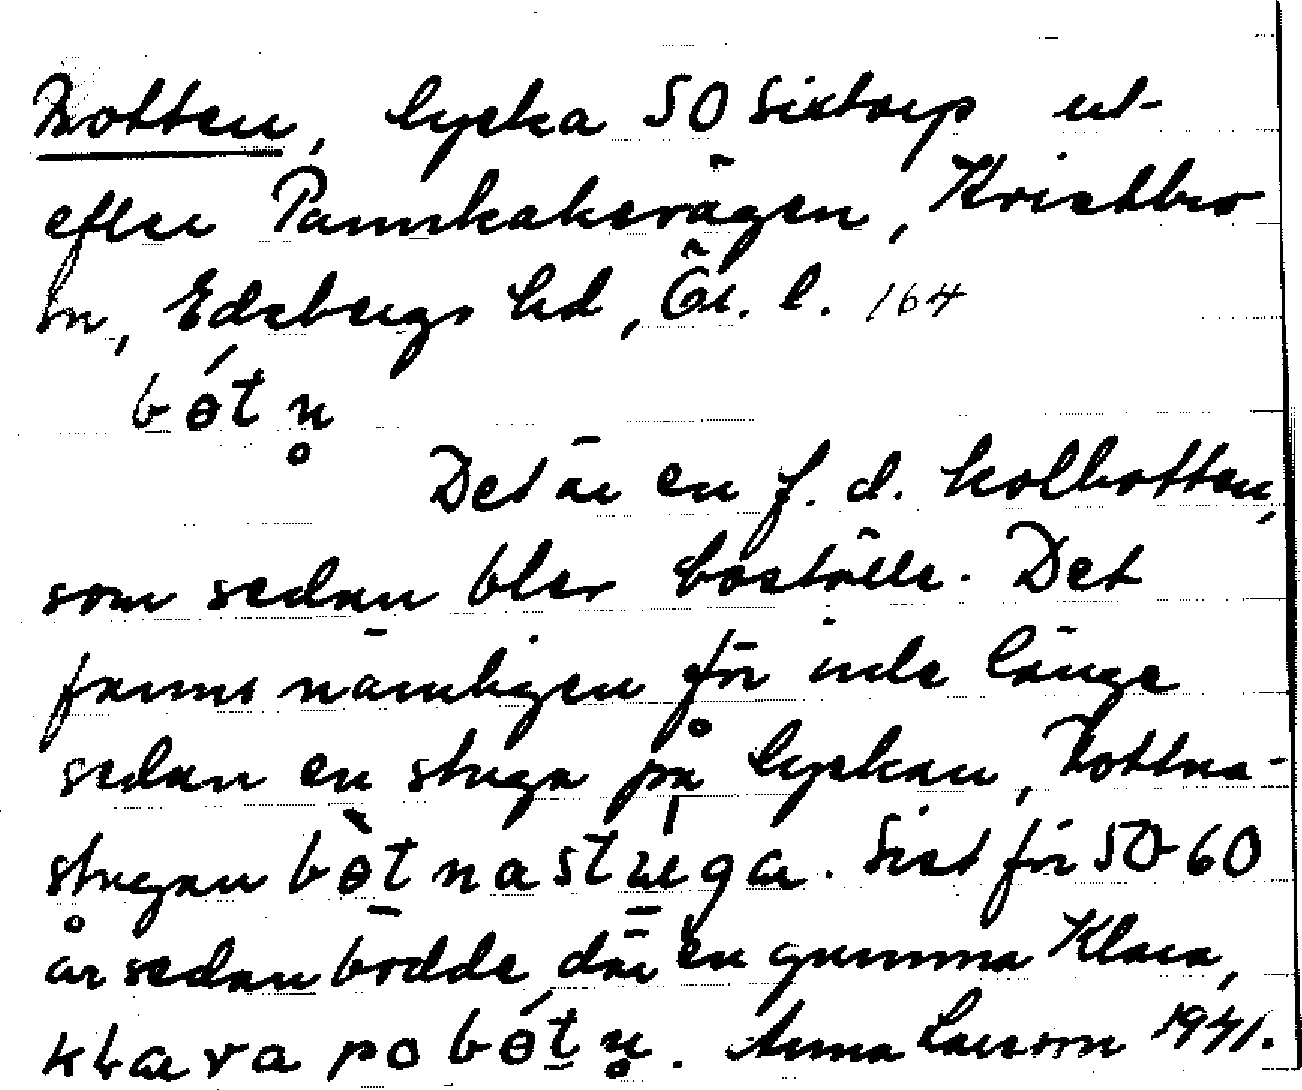 Botten, lycka SO Sixtorp ut-
efter Pannkaksvägen, Kvistbro
sn, Edsbergs hd, Ör. l. 164
bǿtn̥
Det är en f. d. kolbotten,
som sedan blev boställe. Det
fanns nämligen för inte länge
sedan en stuga på lyckan, Bottna-
stugan bɵ̀tnastuga. Sist för 50-60
år sedan bodde där en gumma Klara,
klara po bɵ́tn̥. Anna Larsson 1941.